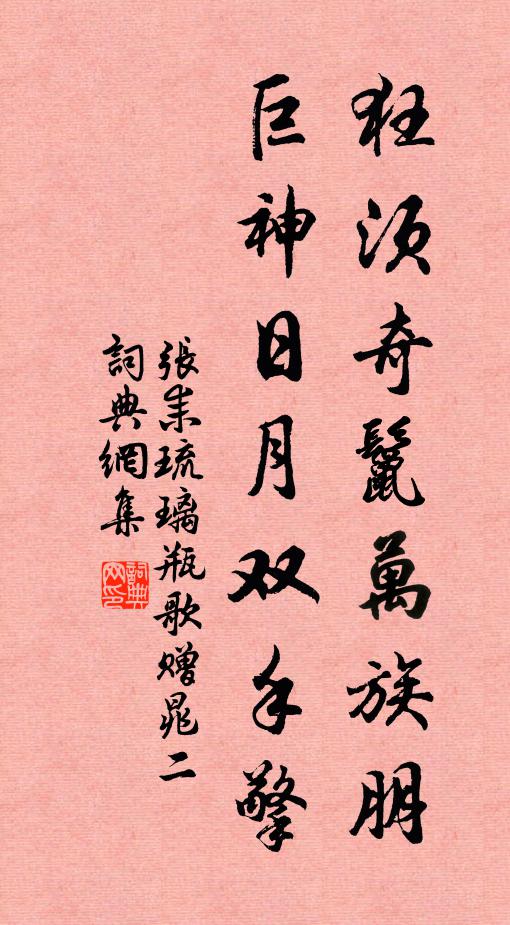 狂须奇鬣萬族朋
巨神日月双手擎
張耒琉璃瓶歌赠晁二
詞典網集
詞典網印